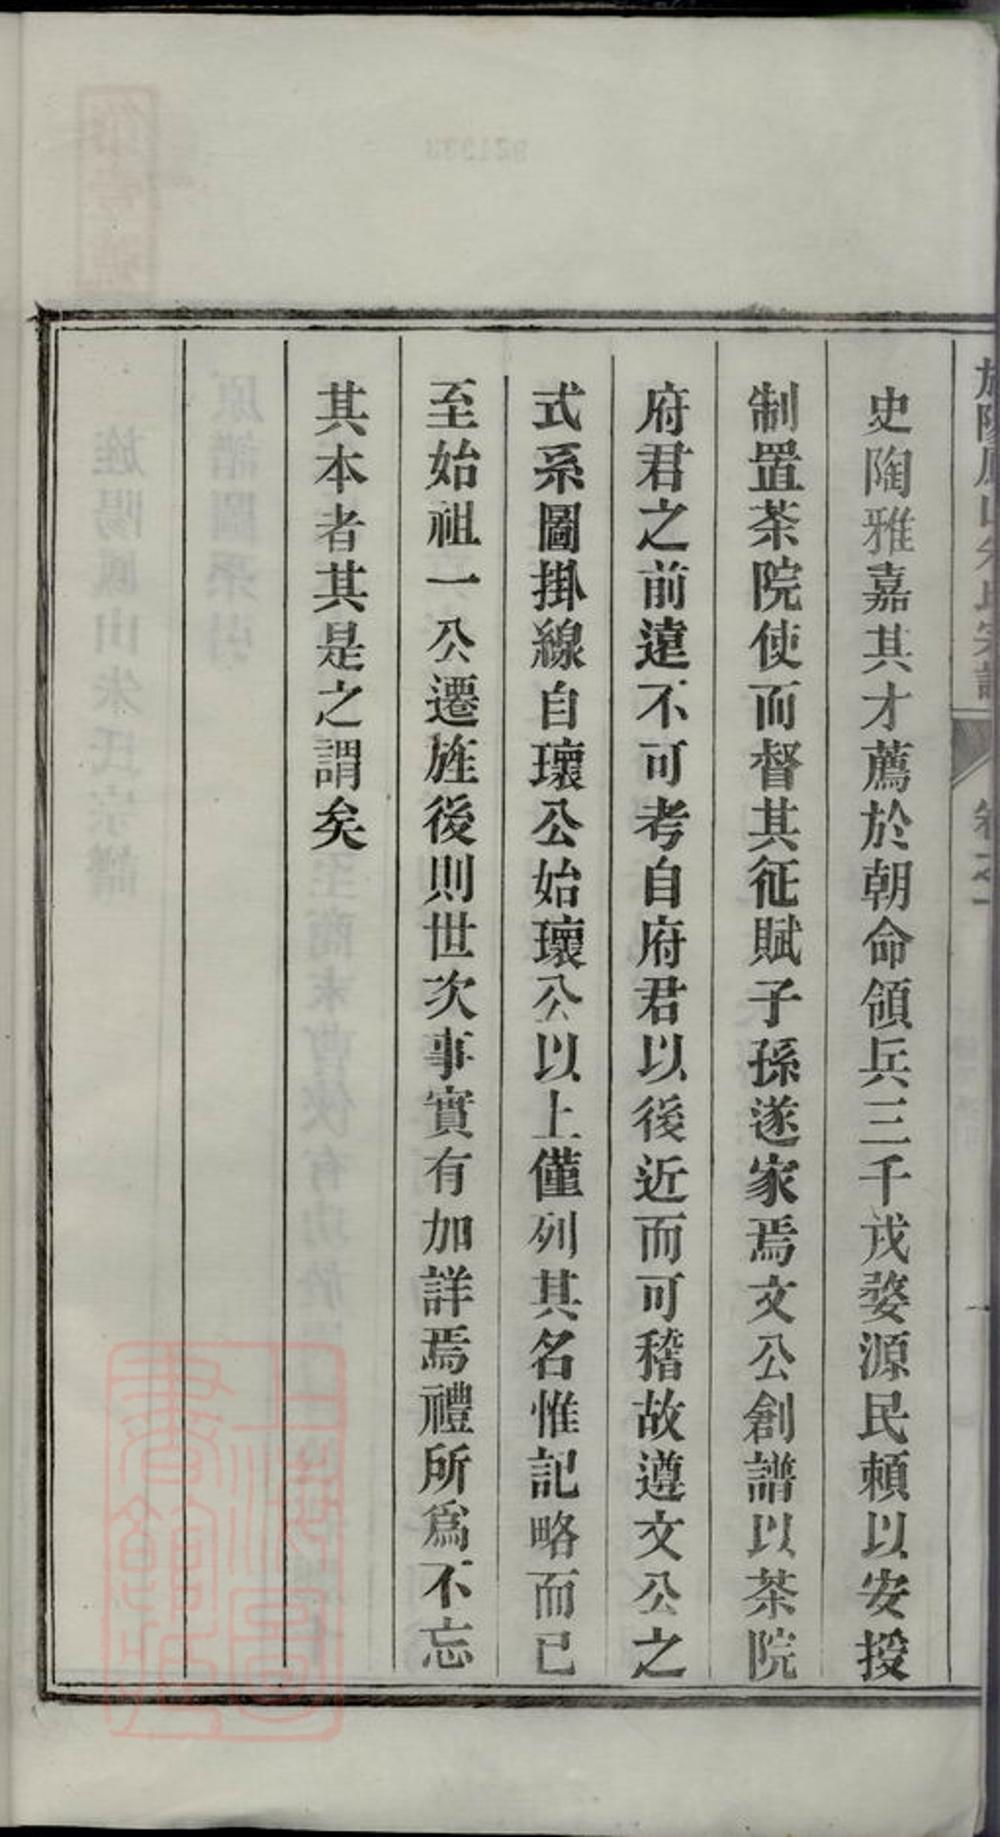 史陶雅嘉其才薦於朝命領兵三千戍婺源民賴以安授
制置茶院使而督其征賦子孫遂家焉文公創譜以茶院
府君之前遠不可考自府君以後近而可稽故遵文公之
式系圖掛線自瓌公始瓌公以上僅列其名惟記略而已
至始祖一公遷旌後則世次事實有加詳焉禮所爲不忘
其本者其是之謂矣
上海圖書館藏